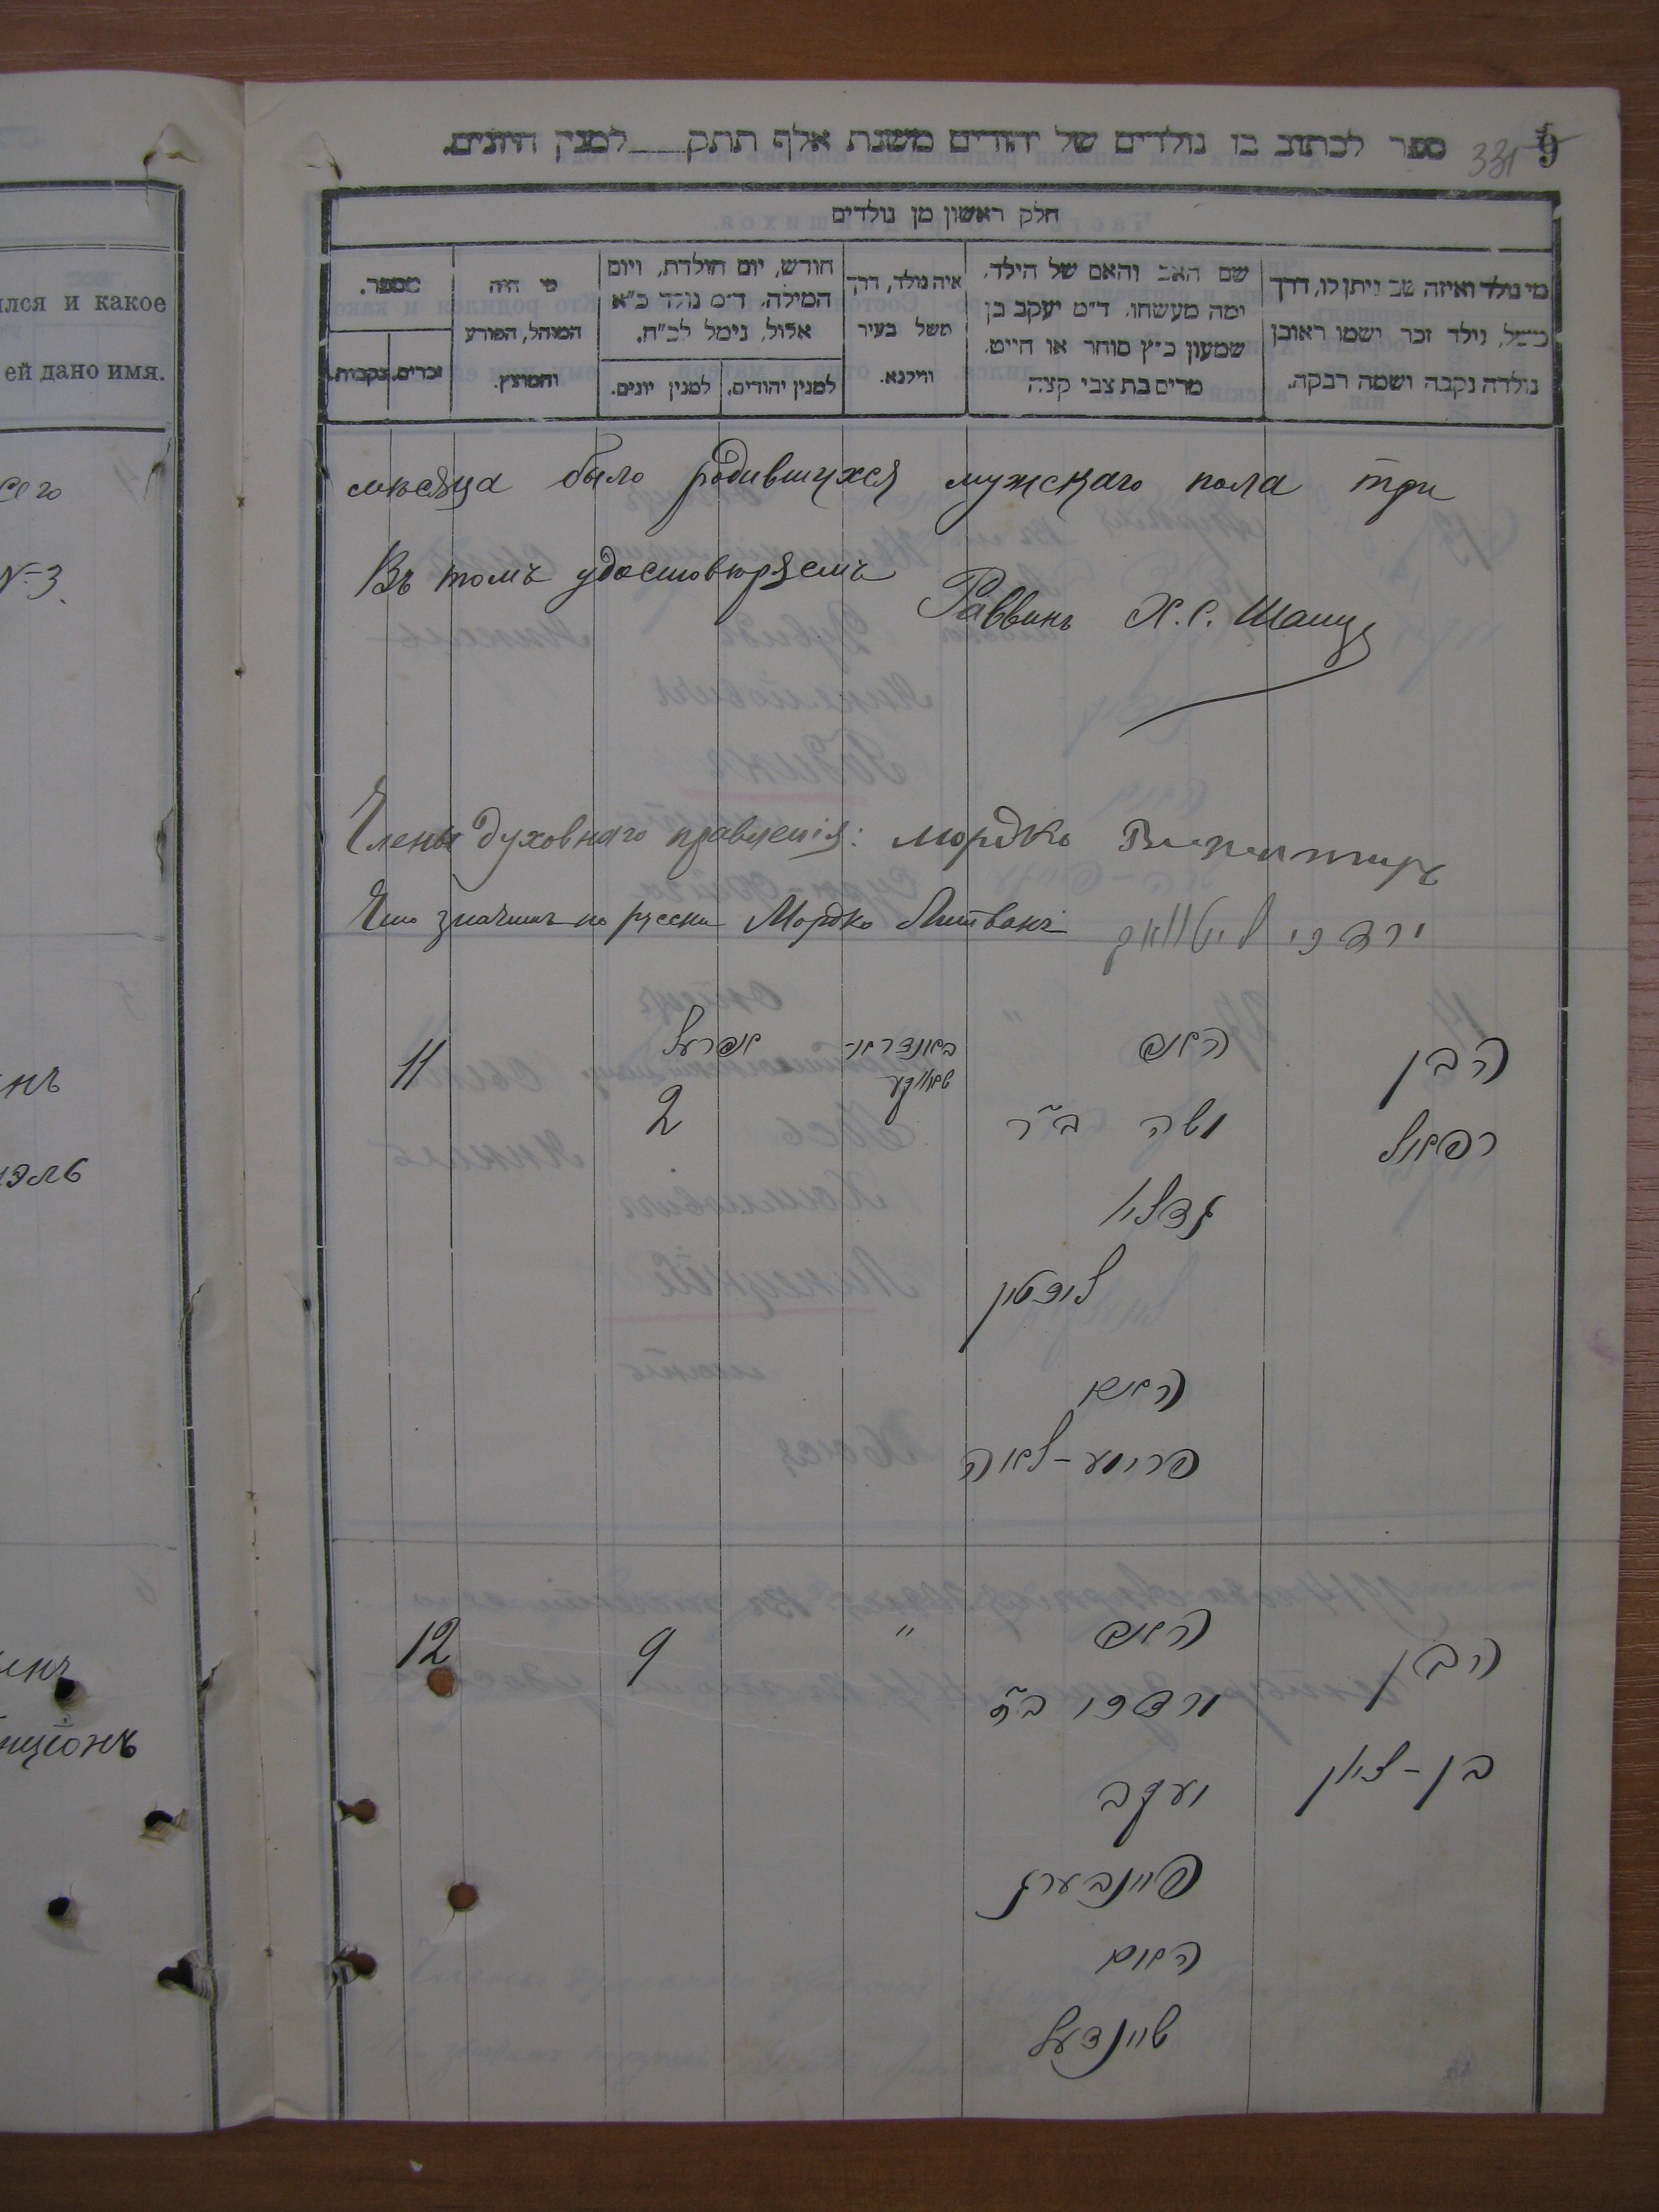 лся и какое
ей дано имя.
сего
№ 3
нъ
эль
енъ
нціонъ
9
331
ספר לכתוב בו נולדים של יהודים משנת אלף תתק___למנין היונים.
חלק ראשון מן נולדים
מי נולד ואיזה שם ניתן לו, דרך
משל, נולד זכר ושמו ראובן
נולדה נקבה ושמה רבקה.
שם האב והאם של הילד,
ומה מעשהו. ד״מ יעקב בן
שמעון כ״ץ סוחר או חייט.
מרים בת צבי קצה
איה נולד, דרך
משל בעיר
ווילנא.
חודש, יום הולדת, ויום
המילה. ד״מ נולד כ״א
אלול, נימל לכ״ח.
למנין יהודים.
למנין יונים.
מי היה
המוהל, הפורע
והמוצץ.
מספר.
זכרים.
נקבות.
мѣсяца было родившихся мужскаго пола три
Въ томъ удостовѣряемъ
Раввинъ Х. С.
Члены духовнаго правленія: Мордко
Что значитъ по русски Мордко Литвакъ
מרדכי ליטוואק
הבן
רפאל
האב
משה ב״ר
גדליו
האם
פרומע-לאה
אפריל
2
11
הבן
בן-ציון
האב
מרדכי ב״ר
יעקב
פיינבערג
האם
שיינדעל
"
9
12